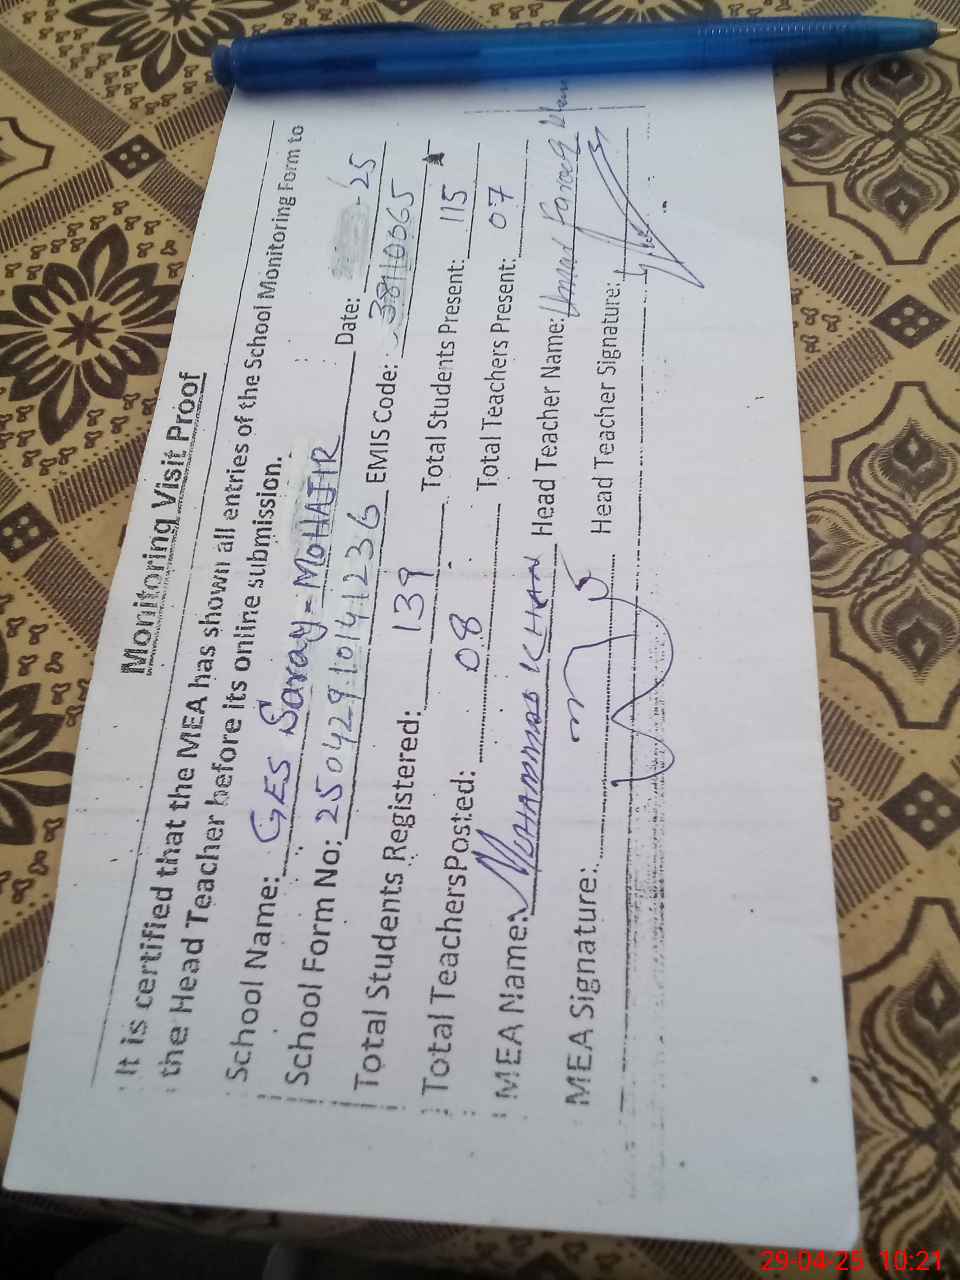 Monitoring Visit Proof
It is certified that the MEA has shown all entries of the School Monitoring Form to
the Head Teacher before its online submission.
School Name: GES Saray-MOHAJIR Date: -25
School Form No: 25042910141236 EMIS Code: 38110365
Total Students Registered: 139 Total Students Present: 115
Total TeachersPosted: 08 Total Teachers Present: 07
MEA Name: MOHAMMAD KHAN Head Teacher Name: Farooq
MEA Signature: Head Teacher Signature:
29-04-25 10:21